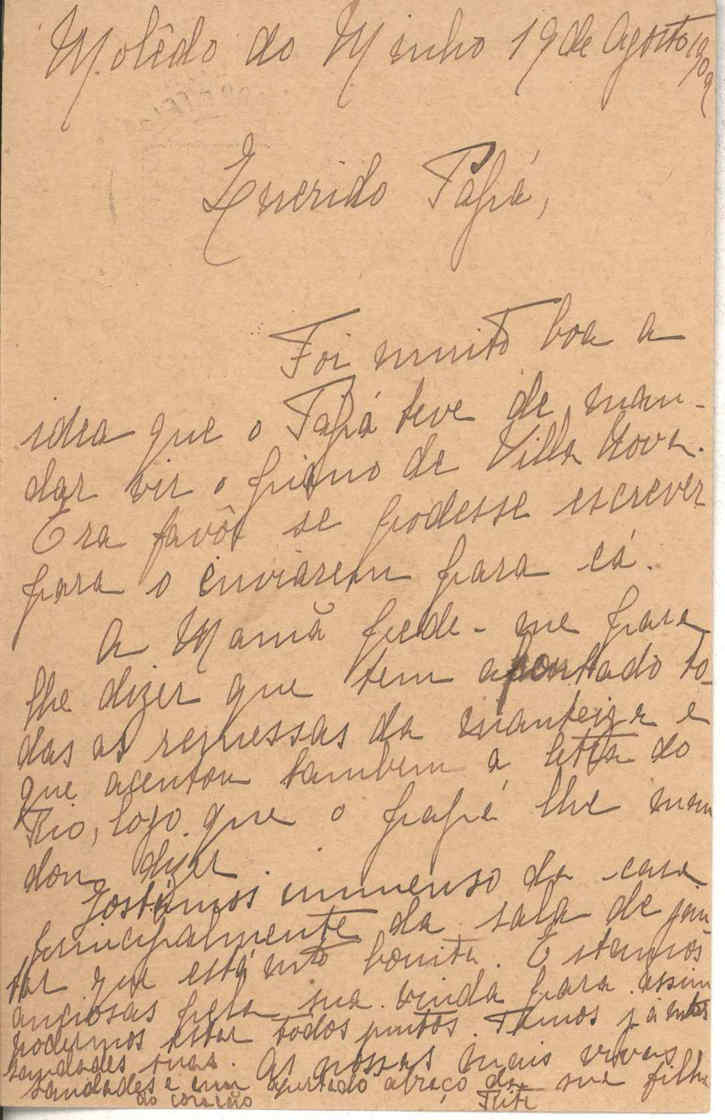 Molêdo do Minho 19 de Agosto 1909
Querido Papá,
Foi muito boa a
idea que o Papá teve de man-
dar vir o piano de Villa Nova.
Era favôr se podesse escrever
para o enviarem para cá.
A Mamã pede-me para
lhe dizer que tem apontado to-
das as remessas da manteiga e
que acentou tambem a letra do
Rio, logo que o papá lhe man
dou dizer.
Gostámos immenso da casa
principalmente da sala de jan
tar que está mto bonita. Estamos
anciosas pela sua vinda para assim
podermos estar todos juntos. Temos já mtas
saudades suas. As nossas mais vivas
saudades e um apertado abraço da sua filha
do coração